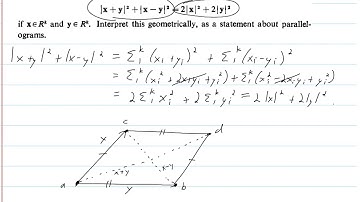 |x + y|² + |x − y|² = 2|x|² + 2|y|²
if x ∈ Rᵏ and y ∈ Rᵏ. Interpret this geometrically, as a statement about parallel-
ograms.
|x+y|² + |x-y|² = Σ₁ᵏ (xᵢ + yᵢ)² + Σ₁ᵏ (xᵢ - yᵢ)²
= Σ₁ᵏ (xᵢ² + 2xᵢyᵢ + yᵢ²) + Σ₁ᵏ (xᵢ² - 2xᵢyᵢ + yᵢ²)
= 2 Σ₁ᵏ xᵢ² + 2 Σ₁ᵏ yᵢ² = 2|x|² + 2|y|².
c
d
x
x+y
x-y
a
y
b